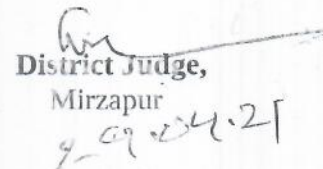 District Judge,
Mirzapur
09.04.21